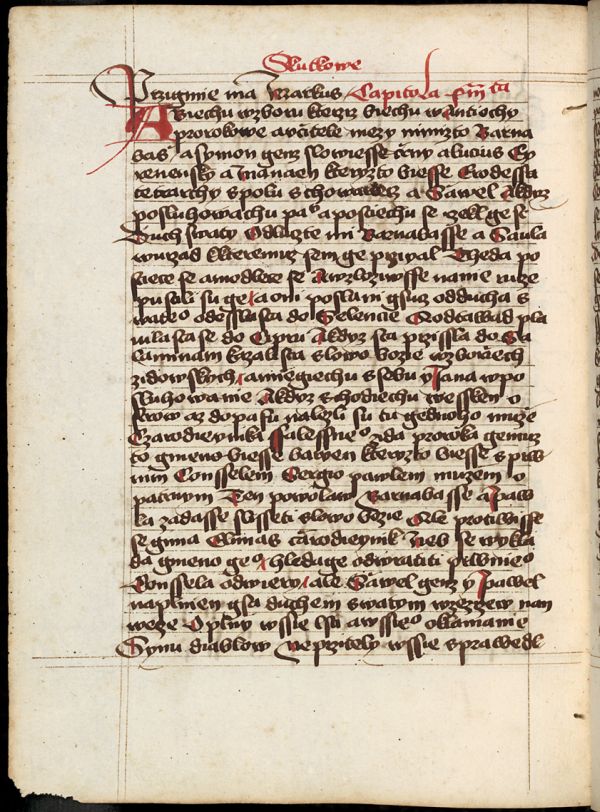 Skutkowe
Przygmie ma Markus Capitola
A Biechu w zboru kteryz biechu w Antiochy
prorokowe a vcitele mezy nimizto Barna
bas a symon genz slowiesse cirny a lucius Cy
renensky a manaen kteryzto biesse Erodessa
tetrarchy spolu schowanecz a Sawel A kdyz
posluhowachu panu a postiechu se rzekl ge se
Duch swaty Odluczte mi Barnabasse a Saula
w urzad k kteremuz sem ge przigal Theda po
stiece se a modlece se A wzlozywsse na nie rucze
pustili su ge A oni poslani gsuz od ducha s
wateo odessla sta do Selencie A odtawad pla
wila sta se do Cipru A kdyz sta prissla do Sa
laminam kazala sta slowo bozie w zborziech
zidowskych a miegiechu s sebu y Jana w po
sluhowanie A kdyz schodiechu wessken o
strow az do pafu nalezli su tu gednoho muze
Czarodieynika falessneo zida proroka gemuz
to gmeno biesse bariew kteryzto biesse s prw
nim Consselem Sergio pawlem muzem o
patrnym Ten powolaw Barnabasse a paw
la zadasse slisseti slowo bozie Ale protiwisse
se gima Elimas czarodieynik Neb se wykla
da gmeno geo hledage odwratiti prwnieo
Konssela od wiery ale Sawel genz y pawel
naplnien gsa duchem swatym wzezrzew nan
wece O plny wssie lsti a wssieo oklamanie
Synu diablow neprzitely wssie sprawedl